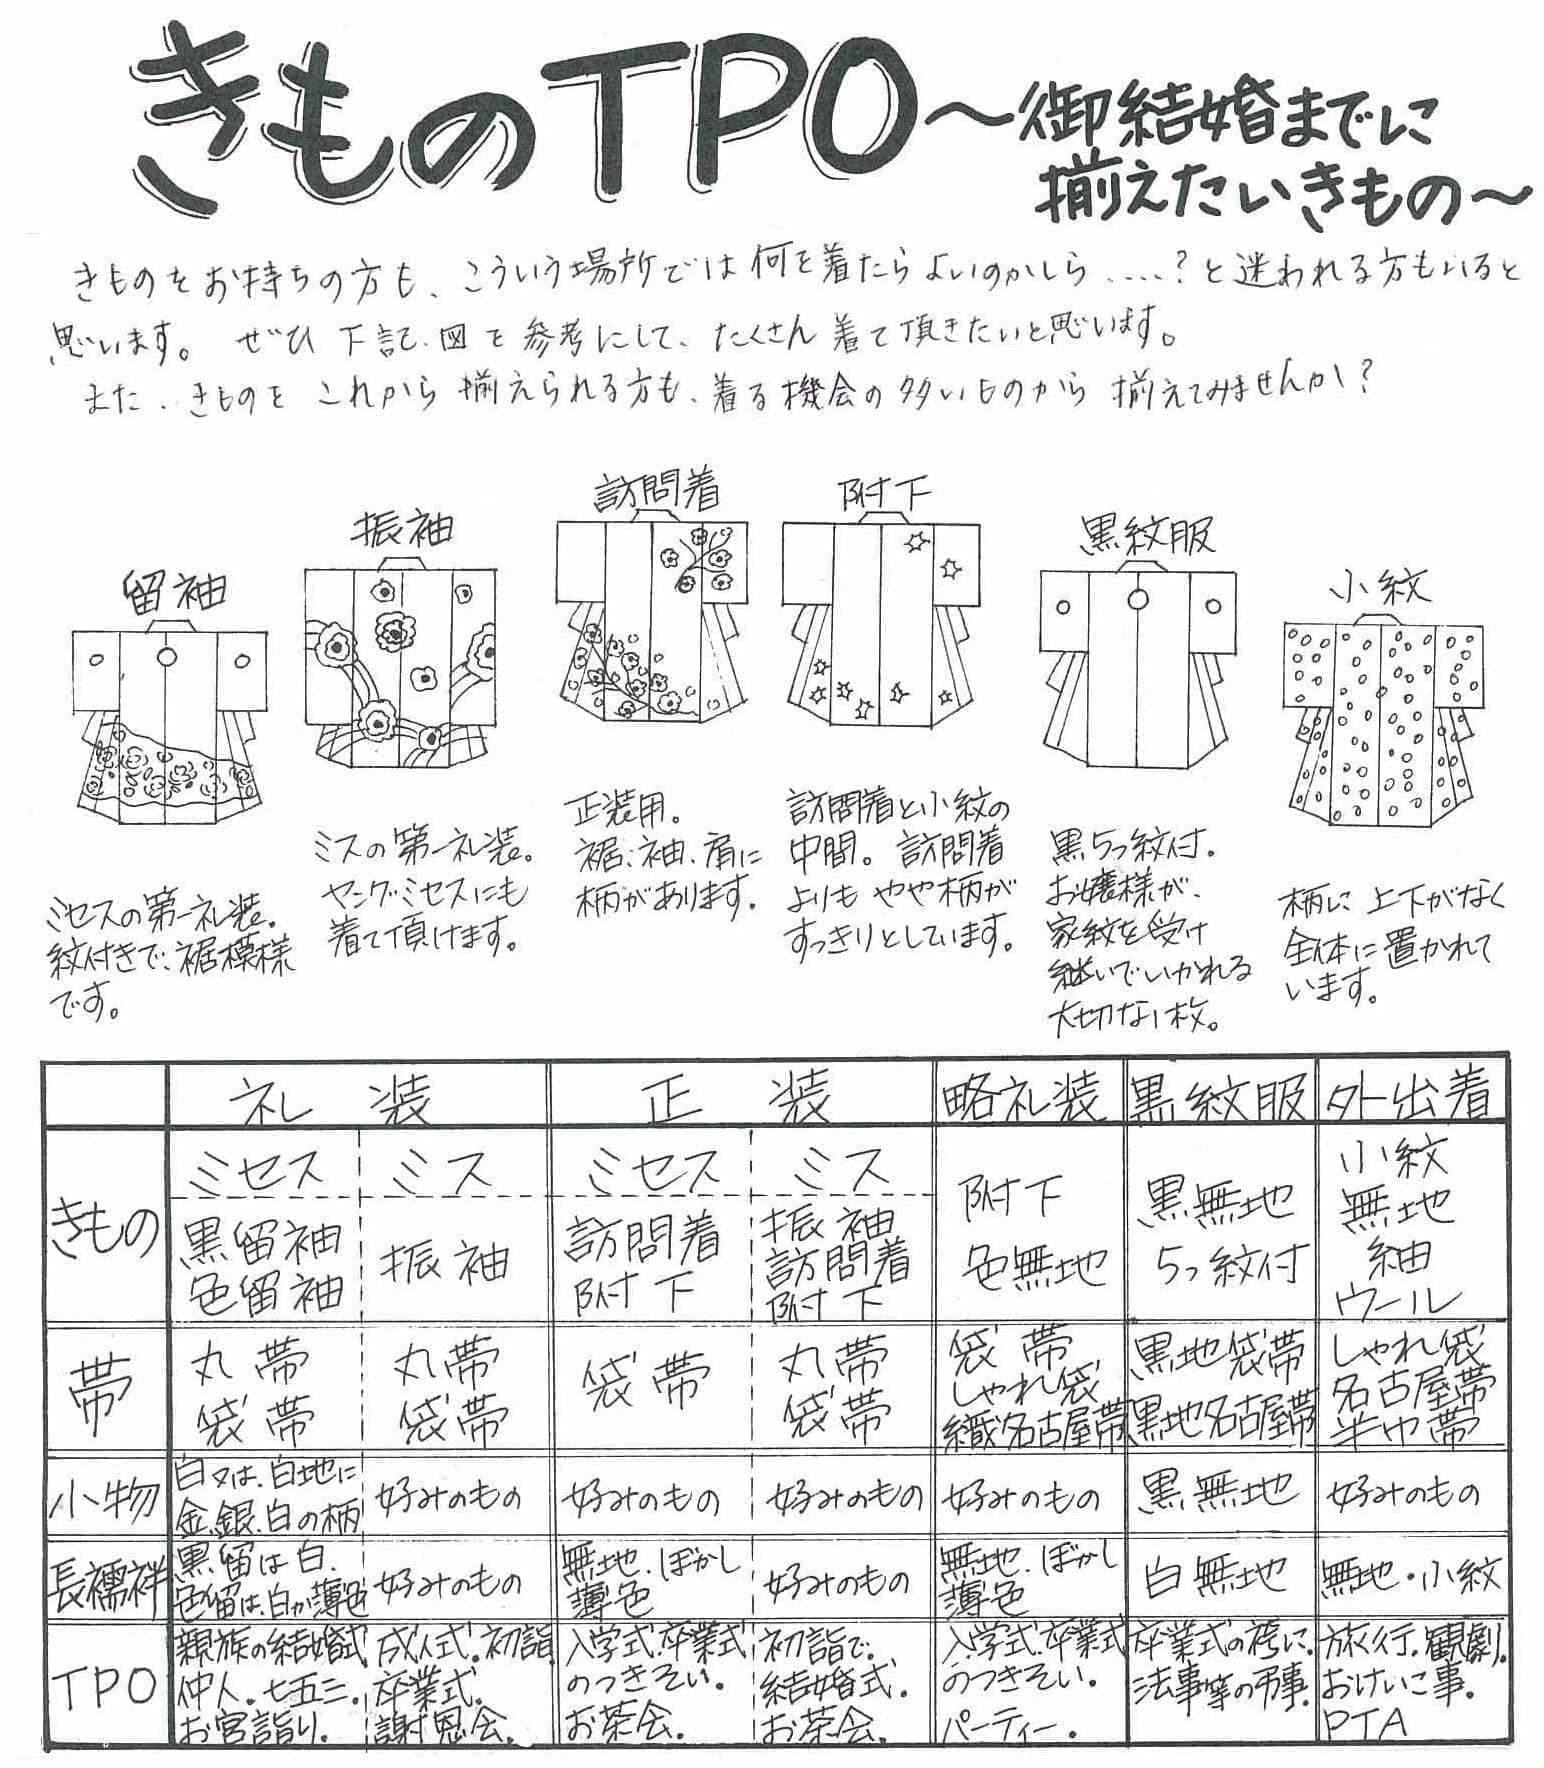 きものTPO～御結婚までに
揃えたいきもの～
きものをお持ちの方も、こういう場所では何を着たらよいのかしら....?と迷われる方もいると
思います。ぜひ下記、図を参考にして、たくさん着て頂きたいと思います。
また、きものをこれから揃えられる方も、着る機会の多いものから揃えてみませんか?
留袖
ミセスの第一礼装。
紋付きで、裾模様
です。
振袖
ミスの第一礼装。
ヤングミセスにも
着て頂けます。
訪問着
正装用。
裾、袖、肩に
柄があります。
附下
訪問着と小紋の
中間。訪問着
よりもやや柄が
すっきりとしています。
黒紋服
黒5つ紋付。
お嬢様が、
家紋を受け
継いでいかれる
大切な1枚。
小紋
柄に上下がなく
全体に置かれて
います。
礼装 正装 略礼装 黒紋服 外出着
きもの
ミセス
黒留袖
色留袖
ミス
振袖
ミセス
訪問着
附下
ミス
振袖
訪問着
附下
附下
色無地
黒無地
5つ紋付
小紋
無地
紬
ウール
帯
丸帯
袋帯
丸帯
袋帯
袋帯
丸帯
袋帯
袋帯
しゃれ袋
織名古屋帯
黒地袋帯
黒地名古屋帯
しゃれ袋
名古屋帯
半巾帯
小物
白又は、白地に
金、銀、白の柄
好みのもの
好みのもの
好みのもの
好みのもの
黒無地
好みのもの
長襦袢
黒留は白、
色留は、白か薄色
好みのもの
無地、ぼかし
薄色
好みのもの
無地、ぼかし
薄色
白無地
無地・小紋
TPO
親族の結婚式
仲人、七五三、
お宮詣り。
成人式、初詣
卒業式、
謝恩会。
入学式、卒業式
のつきそい。
お茶会。
初詣で、
結婚式、
お茶会。
入学式、卒業式
のつきそい。
パーティー。
卒業式の袴に。
法事等の弔事。
旅行、観劇、
おけいこ事。
PTA